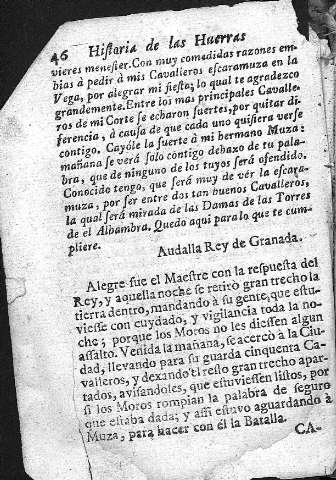 46 Historia de las Huerras
vieres menester. Con muy comedidas razones em-
bias à pedir à mis Cavalleros escaramuza en la
Vega, por alegrar mi fiesta; lo qual te agradezco
grandemente. Entre los mas principales Cavalle-
ros de mi Corte se echaron suertes, por quitar di-
ferencia, à causa de que cada uno quisiera verse
contigo. Cayòle la suerte à mi hermano Muza:
mañana se verà solo contigo debaxo de tu pala-
bra, que de ninguno de los tuyos serà ofendido.
Conocido tengo, que serà muy de vèr la escara-
muza, por ser entre dos tan buenos Cavalleros,
la qual serà mirada de las Damas de las Torres
de el Alhambra. Quedo aqui para lo que te cum-
pliere.
Audalla Rey de Granada.
Alegre fue el Maestre con la respuesta del
Rey, y aquella noche se retirò gran trecho la
tierra dentro, mandando à su gente, que estu-
viesse con cuydado, y vigilancia toda la no-
che; porque los Moros no les diessen algun
assalto. Venida la mañana, se acercò à la Ciu-
dad, llevando para su guarda cinquenta Ca-
valleros, y dexando el resto gran trecho apar-
tados, avisandoles, que estuviessen listos, por
si los Moros rompian la palabra de seguro
que estaba dada; y assi estuvo aguardando à
Muza, para hacer con èl la Batalla.
CA-